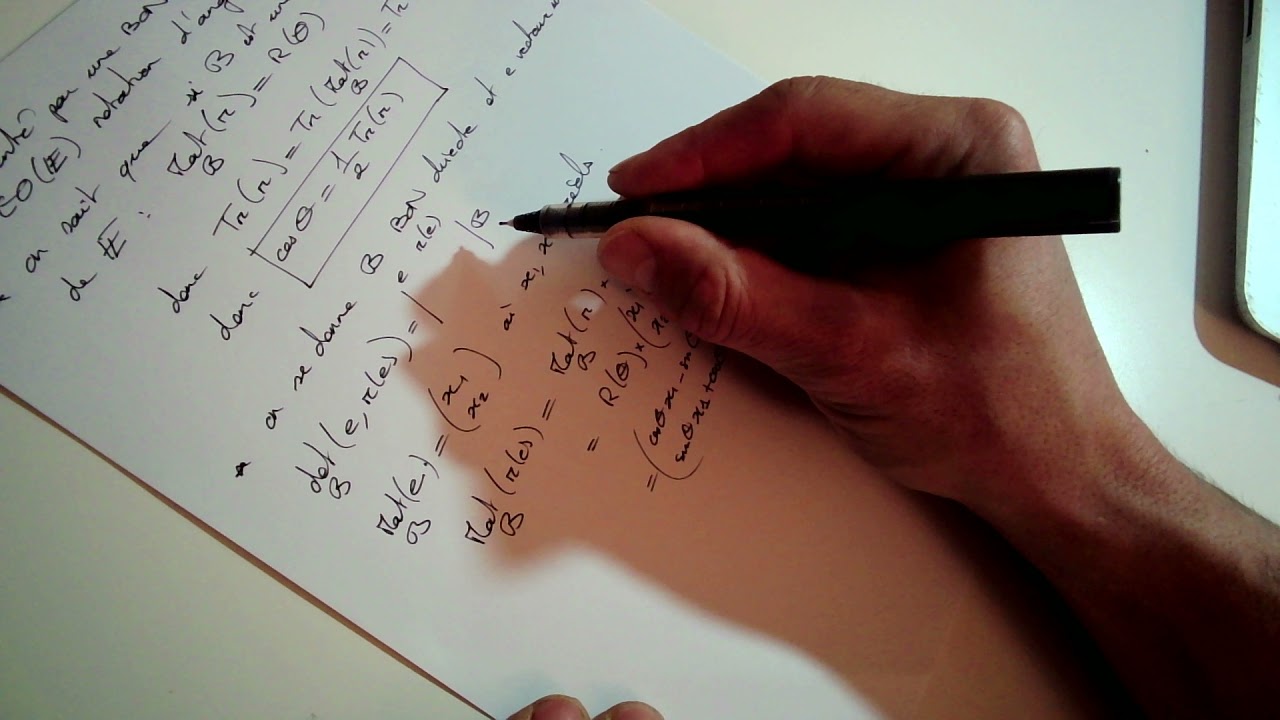 par une BON
O(E) rotation d'ang
* on sait que si B est un
de E : Mat(r) = R(θ)
B
donc Tr(r) = Tr(Mat(r)) = Tr
B
donc cos θ = 1/2 Tr(r)
* on se donne B BON directe et e vecteur
det(e, r(e)) = | e r(e) | B
B
Mat(e) = (x1 x2) où x1, x réels
B
Mat(r(e)) = Mat(r) ×
B B
= R(θ) × (x1 x2
= (cosθ x1 - sin
sinθ x1 + cos